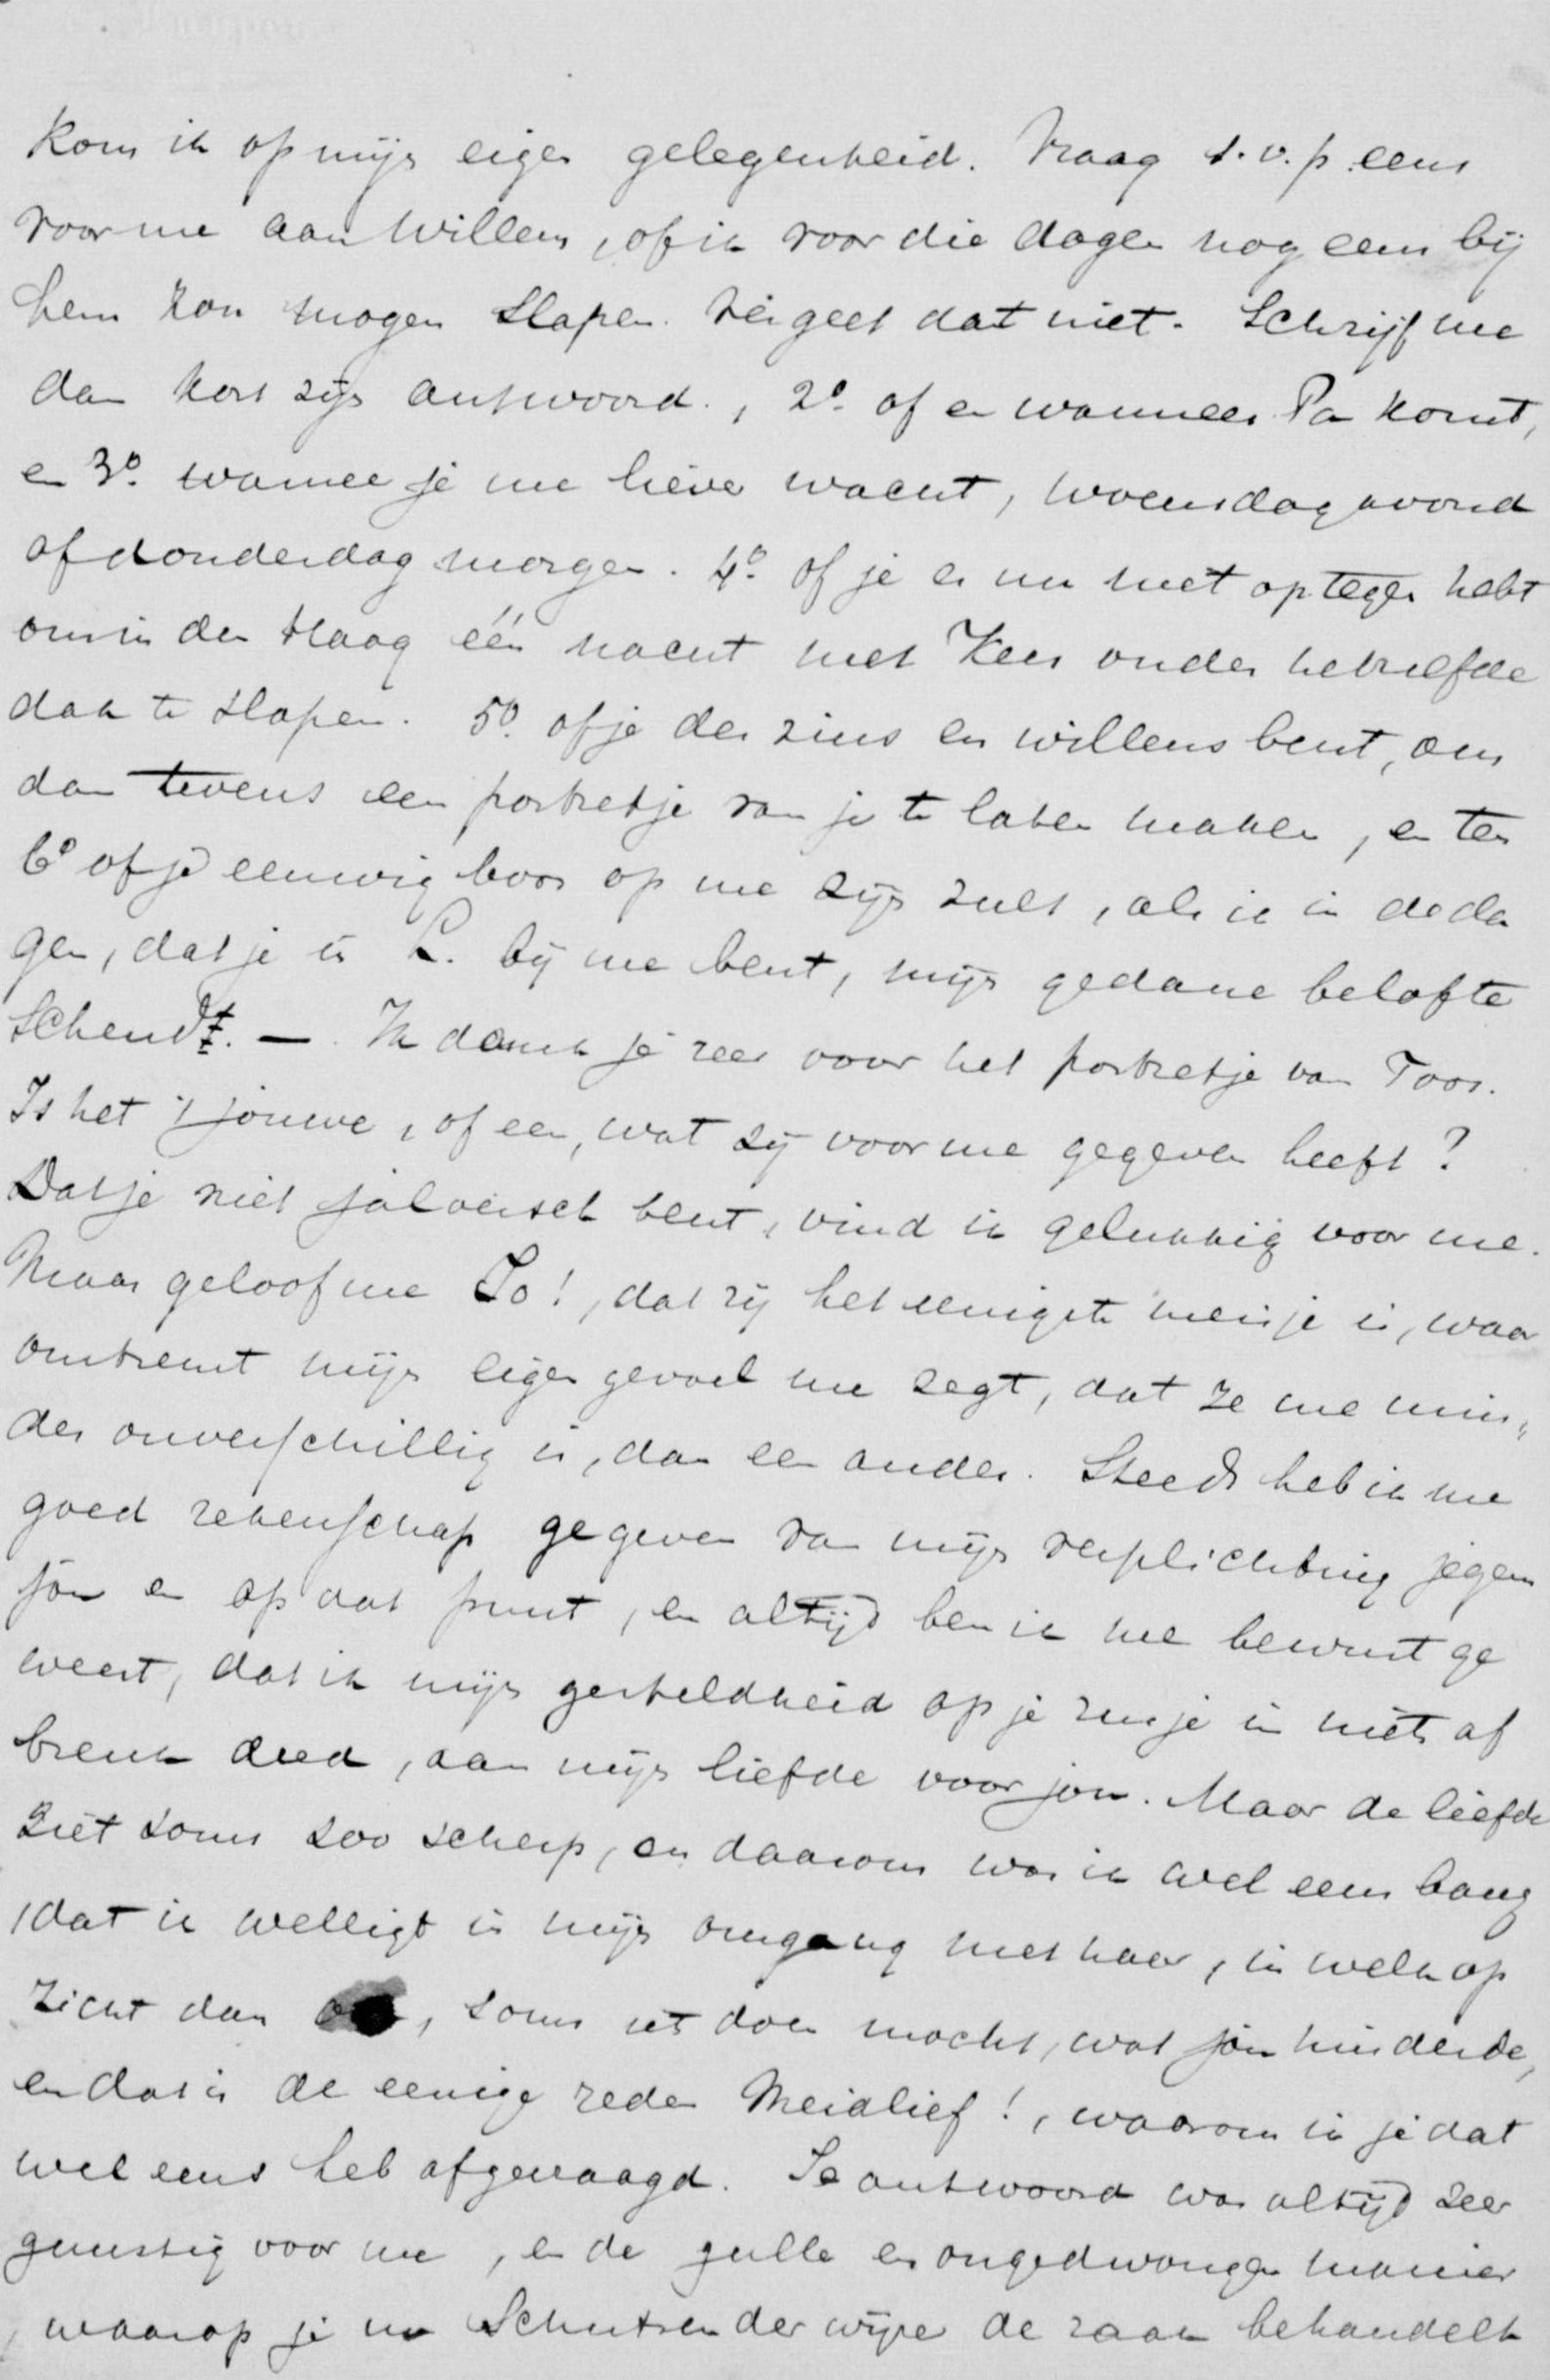 kom ik op mijn eigen gelegenheid. Vraag s.v.p. eens
voor me aan Willem, of ik voor die dagen nog eens bij
hem kon mogen slapen. Vergeet dat niet. Schrijf me
dan kort zijn antwoord., 2º. of en wanneer Pa komt,
en 3º. wanneer je me liever wacht, woensdagavond
of donderdagmorgen. 4º. of je er nu niet op tegen hebt
om in den Haag één nacht met Kees onder hetzelfde
dak te slapen. 5º. of je des zins en willens bent, om
dan tevens een portretje van je te laten maken, en ten
6º of je eeuwig boos op me zijn zult, als ik in de da
gen, dat je in L. bij me bent, mijn gedane belofte
schendt. — Ik dank je zeer voor het portretje van Toos.
Is het 't jouwe, of een, wat zij voor me gegeven heeft?
Dat je niet jaloersch bent, vind ik gelukkig voor me.
Maar geloof me Jo!, dat zij het eenigste meisje is, waar
omtrent mijn eigen gevoel me zegt, dat ze me min„
der onverschillig is, dan een ander. Steeds heb ik me
goed rekenschap gegeven van mijn verplichting jegens
jou en op dat punt, en altijd ben ik me bewust ge
weest, dat ik mijn gesteldheid op je zusje in niets af
breuk deed, aan mijn liefde voor jou. Maar de liefde
ziet soms zoo scherp, en daarom was ik wel eens bang
, dat ik welligt in mijn omgang met haar, in welk op
zicht dan, soms iets doen mocht, wat jou hinderde,
en dat is de eenige reden Meidlief!, waarom ik je dat
wel eens heb afgevraagd. Je antwoord was altijd zeer
gunstig voor me, en de gulle en ongedwongen manier
, waarop je nu schertsenderwijze de zaak behandelt